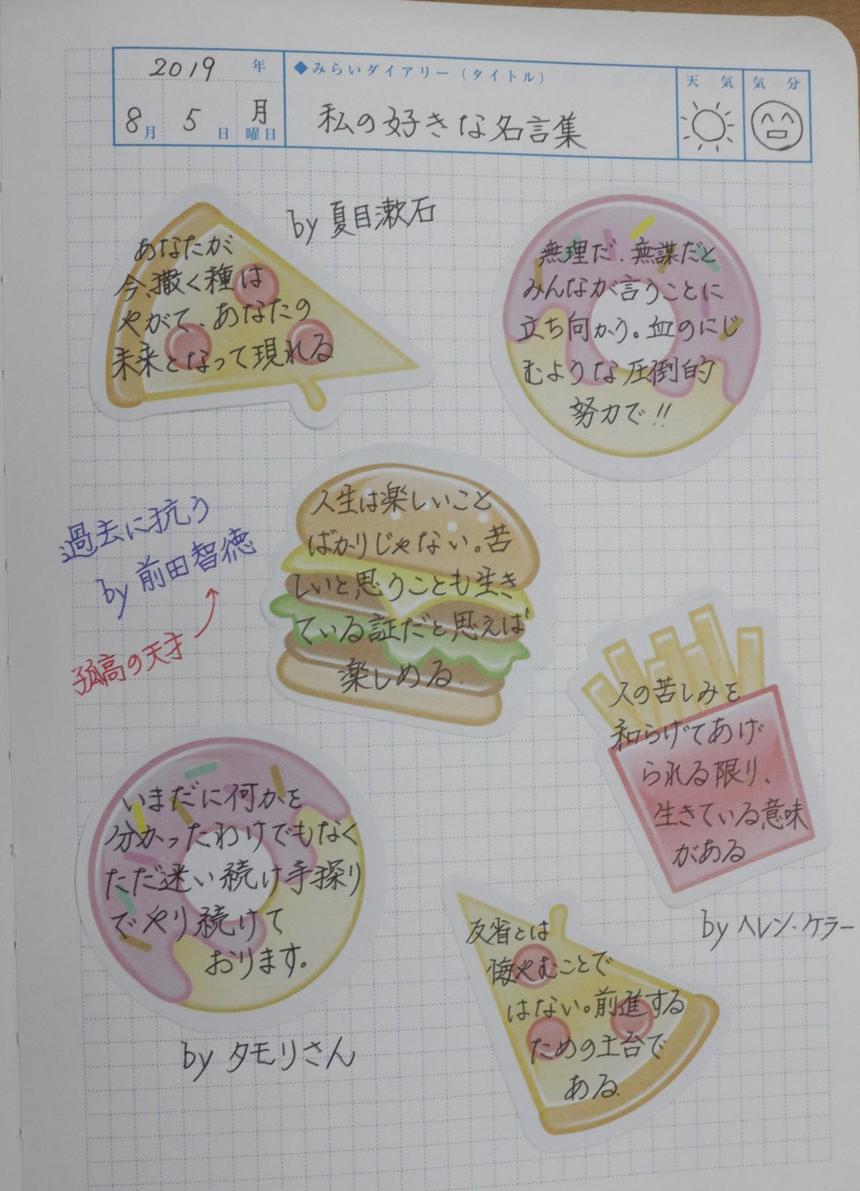 2019 年
8月 5日 月曜日
◆みらいダイアリー(タイトル)
私の好きな名言集
天気
気分
あなたが
今、撒く種は
やがて、あなたの
未来となって現れる
by 夏目漱石
無理だ、無謀だと
みんなが言うことに
立ち向かう。血のにじ
むような圧倒的
努力で!!
人生は楽しいこと
ばかりじゃない。苦
しいと思うことも生き
ている証だと思えば
楽しめる
過去に抗う
by 前田智徳
孤高の天才
人の苦しみを
和らげてあげ
られる限り、
生きている意味
がある
by ヘレン・ケラー
いまだに何かを
分かったわけでもなく
ただ迷い続け手探り
でやり続けて
おります。
by タモリさん
反省とは
悔やむことで
はない。前進する
ための土台で
ある